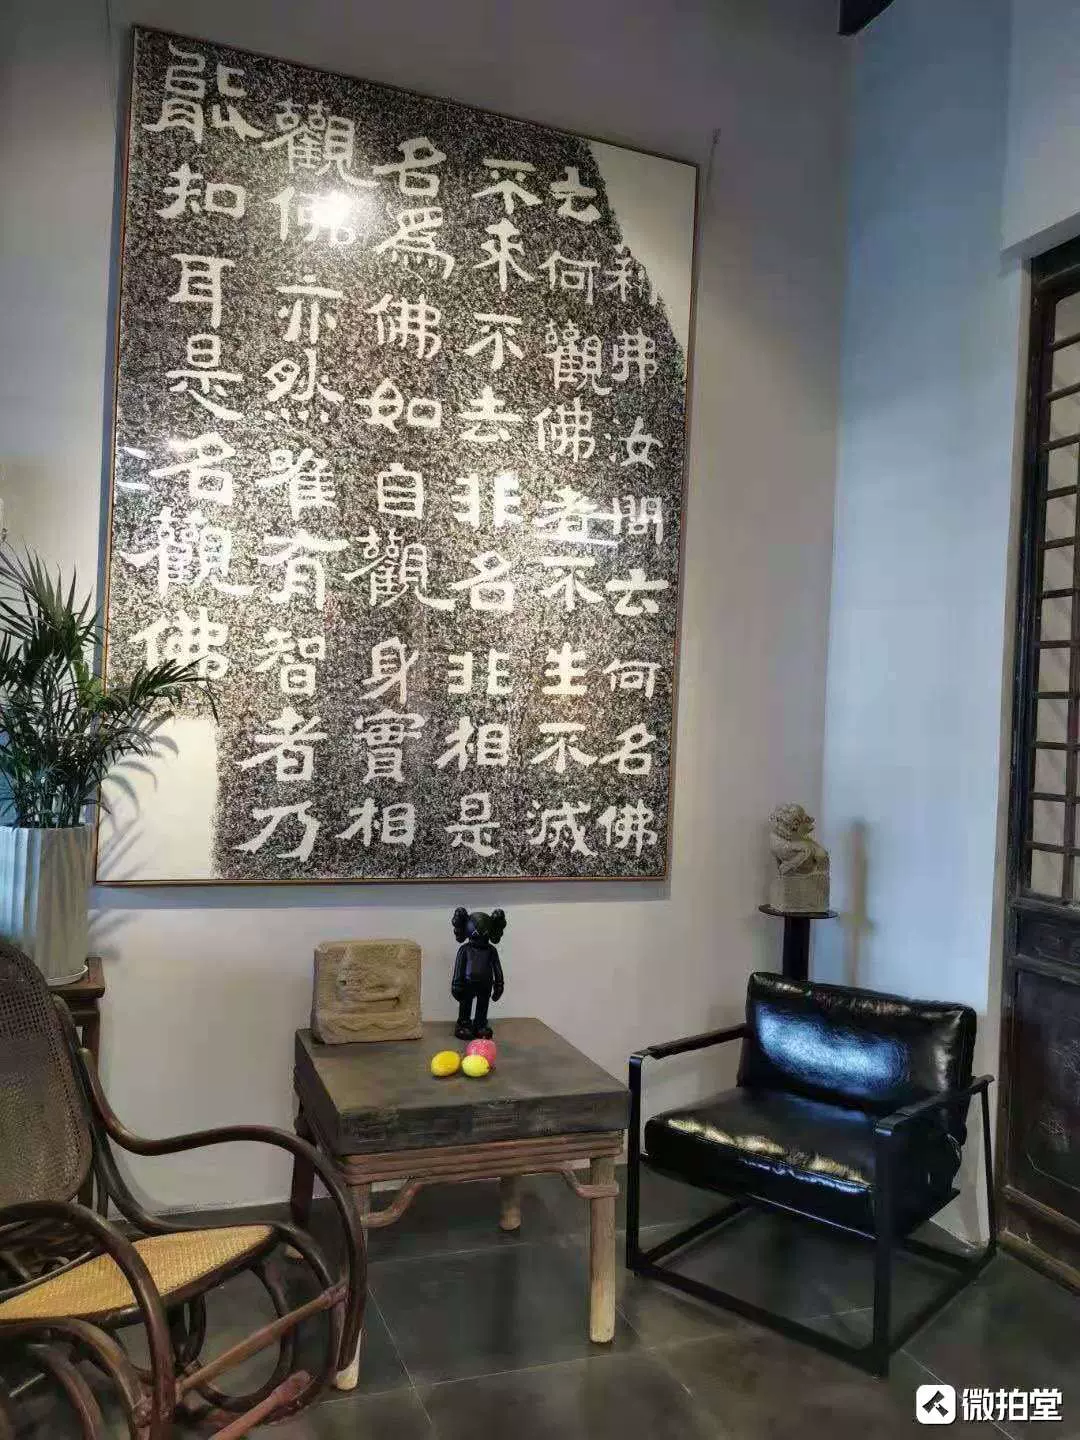 利弗汝問云何名佛
云何觀佛者不生不滅
不來不去非名非相是
名為佛如自觀身實相
觀佛亦然唯有智者乃
能知耳是名觀佛
微拍堂